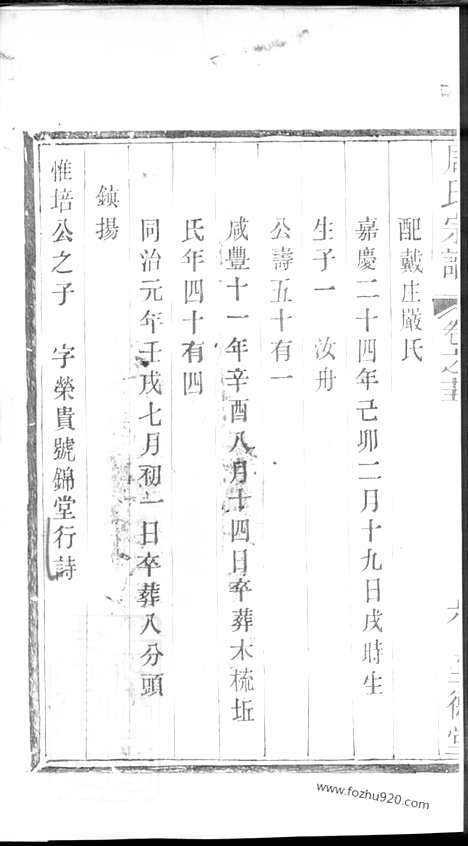 周氏宗譜 卷之
配戴庄嚴氏
嘉慶二十四年己卯二月十九日戌時生
生子一 汝舟
公壽五十有一
咸豐十一年辛酉八月十四日卒葬木梳坵
氏年四十有四
同治元年壬戌七月初一日卒葬八分頭
鎮揚
惟培公之子 字榮貴號錦堂行詩
www.fozhu920.com